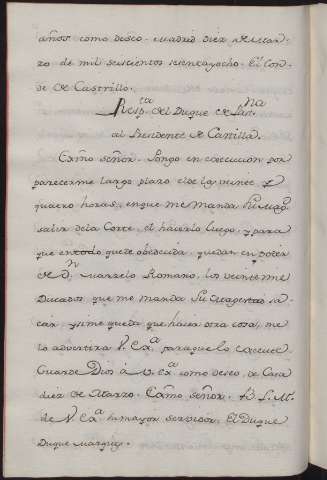 años como deseo. Madrid diez de Mar-
zo de mil seiscientos sesenta y ocho. El Con-
de de Castrillo.
Resp.ta del Duque de San
al Presidente de Castilla.
Exmo señor. Pongo en execucion por
parecerme largo plazo el de las veinte y
quatro horas, en que me manda Su Mag.d
salir de la Corte, el hacerlo luego, y para
que en todo quede obedecida, quedan en poder
de D.n Marzelo Romano, los veinte mil
Ducados que me manda Su Magestad sa-
car, y si me queda que hacer otra cosa, me
lo advertira V. Ex.a para que lo execute.
Guarde Dios a V. Ex.a como deseo, de Casa
diez de Marzo. Exmo señor. B. L. M.
de V. Ex.a su mayor servidor. El Duque
Duque Marques.